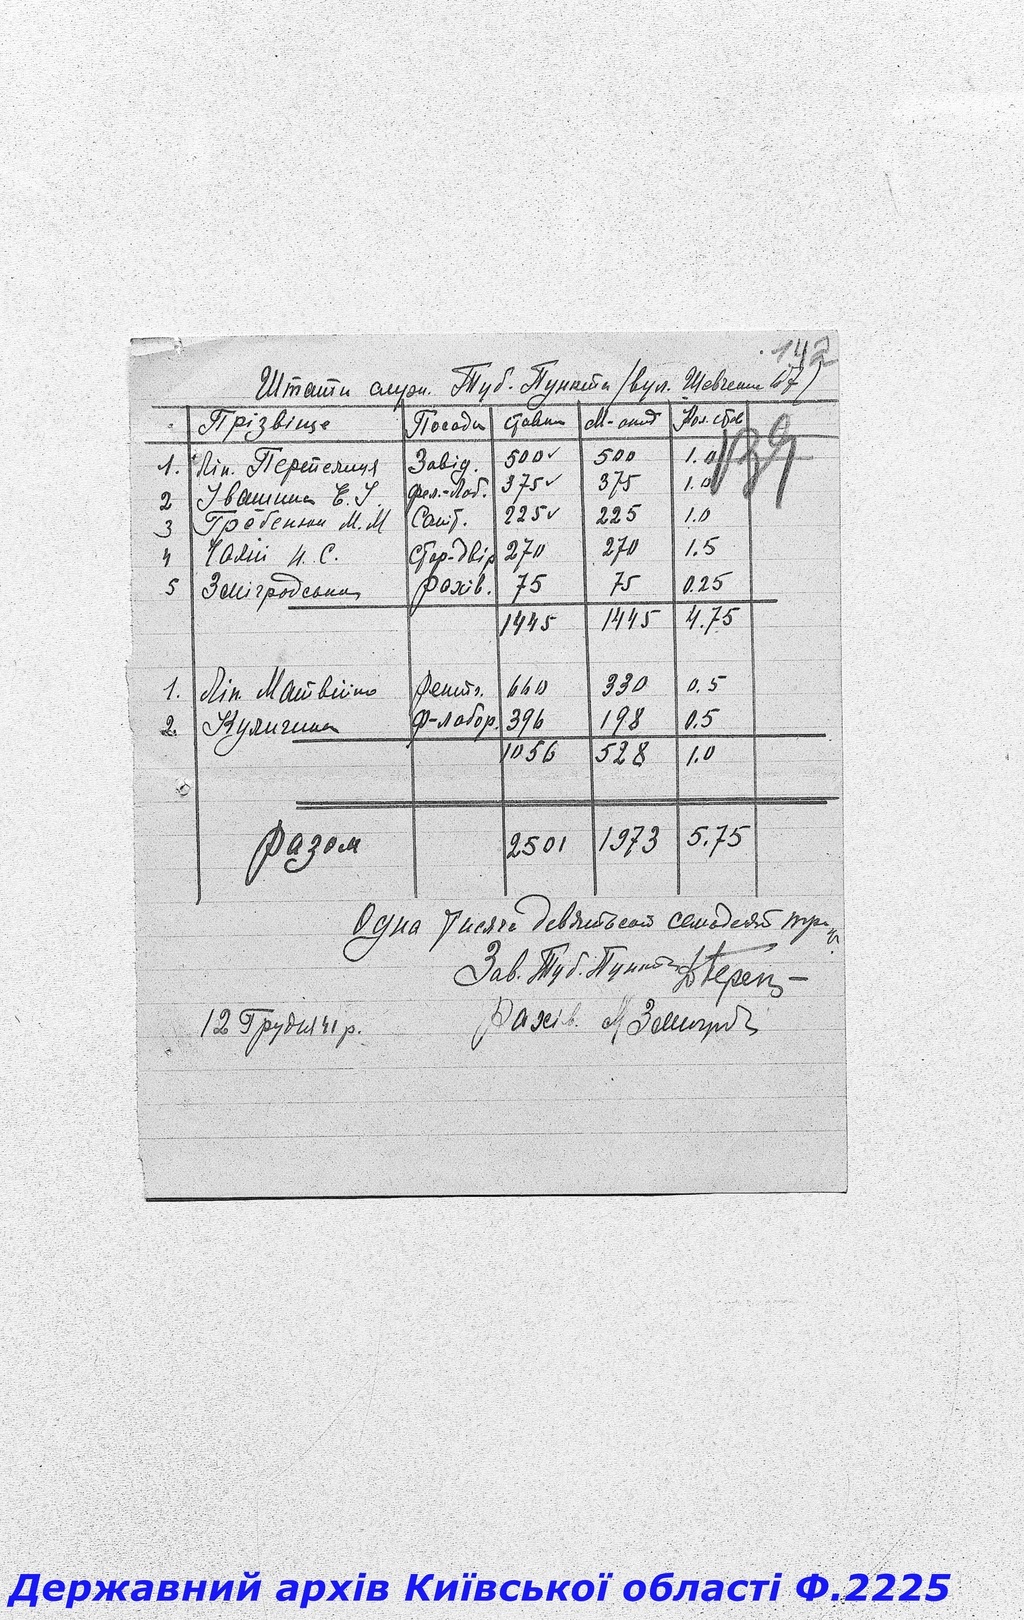 142
Штати служ. Туб. Пункти /вул. Шевченка
139
Прізвище Посади ставки М-опл Кол. став
1. Лік. Перепелиця Завід. 500 500 1.0
2 Івашина Є. І. фел.-Лаб. 375 375 1.0
3 Гребенюк М. М Саніт. 225 225 1.0
4 Чалий С. стор-двір 270 270 1.5
5 Змігродська Рахів. 75 75 0.25
1445 1445 4.75
1. Лік. Матвійко Рентг. 660 330 0.5
2. Куличина Ф-лабор. 396 198 0.5
1056 528 1.0
Разом 2501 1973 5.75
Одна тисяча девятьсот семдесят три
Зав. Туб. Пункти
12 Грудня 41 р. Рахів. М Змигрод
Державний архів Київської області Ф.2225